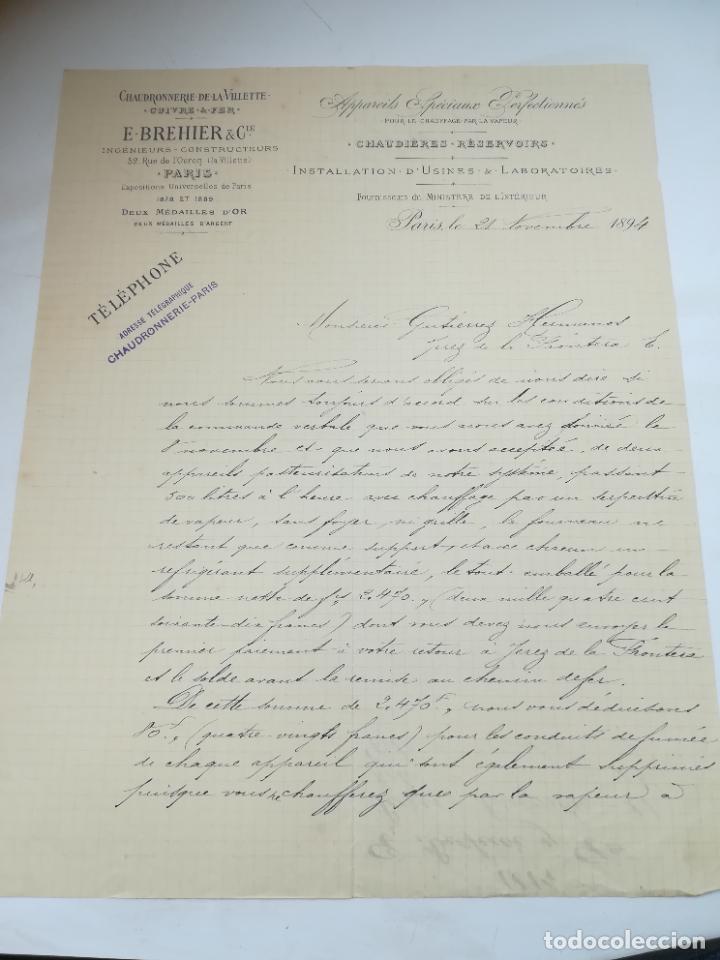 CHAUDRONNERIE-DE-LA VILLETTE
· CUIVRE & FER ·
E·BREHIER & CIE
INGÉNIEURS-CONSTRUCTEURS
52, Rue de l'Ourcq (la Villette)
· PARIS ·
Expositions Universelles de Paris
1878 ET 1889
DEUX MÉDAILLES D'OR
DEUX MÉDAILLES D'ARGENT
Appareils Spéciaux Perfectionnés
POUR LE CHAUFFAGE PAR LA VAPEUR
· CHAUDIÈRES-RÉSERVOIRS ·
INSTALLATION D'USINES & LABORATOIRES
Fournisseurs du MINISTÈRE DE L'INTÉRIEUR
Paris, le 21 Novembre 1894
TÉLÉPHONE
ADRESSE TÉLÉGRAPHIQUE
CHAUDRONNERIE-PARIS
Monsieur Gutierrez Hermanos
Jerez de la Frontera E.
Nous vous serons obligés de nous dire si
nous sommes toujours d'accord sur les conditions de
la commande verbale que vous nous avez donnée le
8 novembre et que nous avons acceptée, de deux
appareils pasteurisateurs de notre système, passant
500 litres à l'heure avec chauffage par un serpentin
de vapeur, sans foyer, ni grille, le fourneau ne
restant que comme support, et avec chacun un
réfrigérant supplémentaire, le tout emballé pour la
somme nette de f 2,470, (deux mille quatre cent
soixante-dix francs) dont vous devez nous envoyer le
premier paiement à votre retour à Jerez de la Frontera
et le solde avant la remise au chemin de fer.
De cette somme de 2,470f, nous vous déduisons
80f, (quatre-vingts francs) pour les conduits de fumée
de chaque appareil qui sont également supprimés
puisque vous ne chaufferez que par la vapeur à
todocoleccion.net